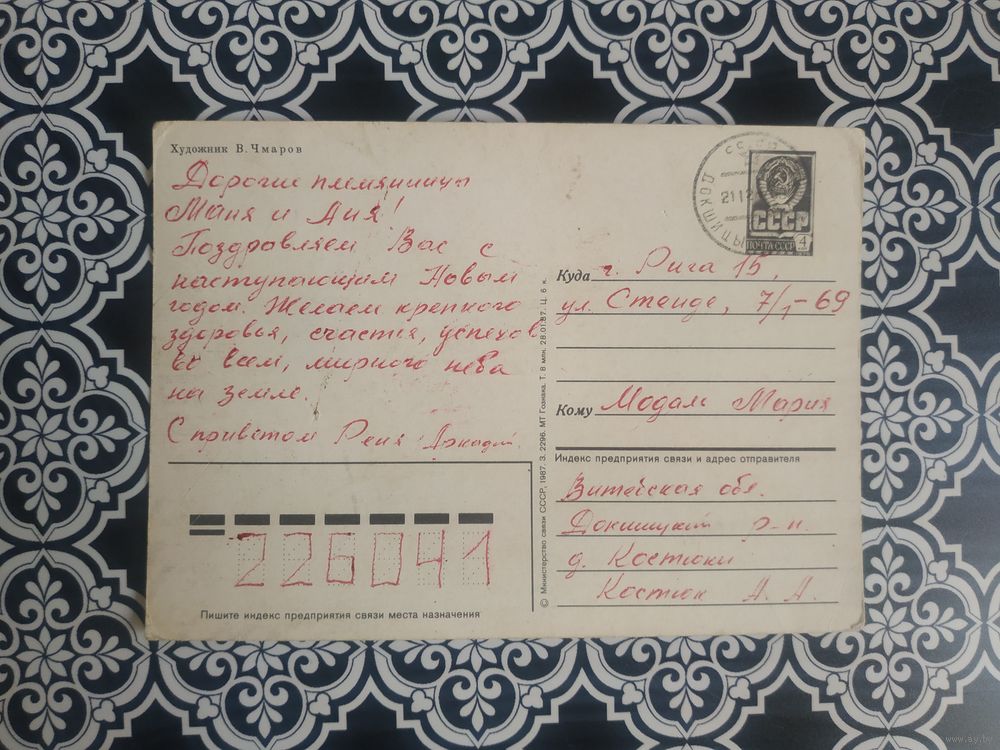 Художник В. Чмаров
Дорогие племянницы
Маня и Аня!
Поздравляем Вас с
наступающим Новым
годом. Желаем крепкого
здоровья, счастья, успехов
во всем, мирного неба
на земле.
С приветом Реня Аркадий
226041
Пишите индекс предприятия связи места назначения
© Министерство связи СССР, 1987. З. 2296. МТ Гознака. Т. 8 млн. 28.01.87. Ц. 6 к.
СССР
ПОЧТА СССР
4
ДОКШИЦЫ
2112
Куда г. Рига 15,
ул. Стенде, 7/1-69
Кому Модам Мария
Индекс предприятия связи и адрес отправителя
Витебская обл.
Докшицкий р-н.
д. Костюки
Костюк А. А.
www.ay.by